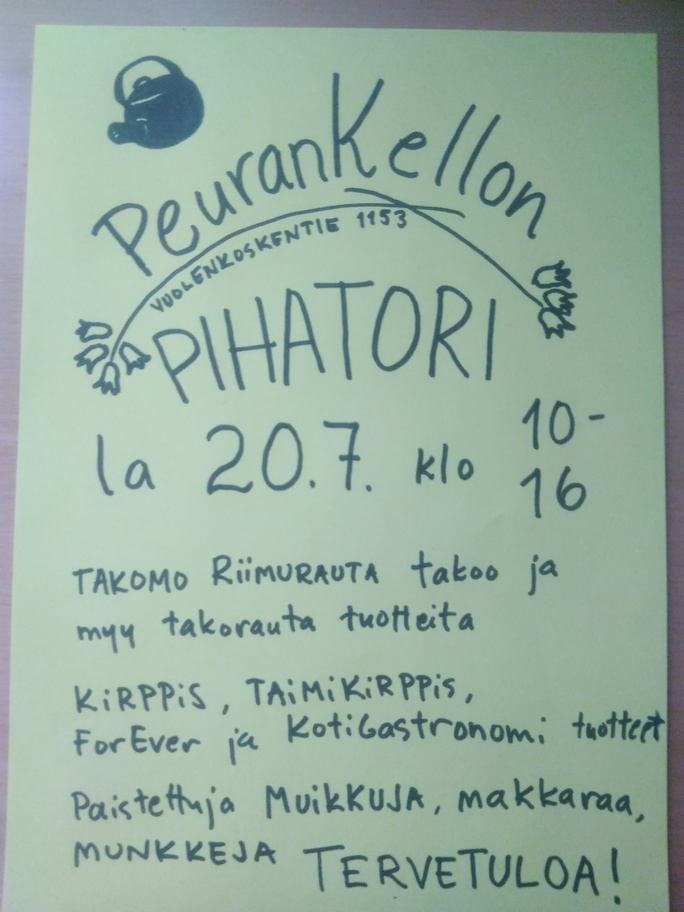 PeuranKellon
VUOLENKOSKENTIE 1153
PIHATORI
la 20.7. klo 10-
16
TAKOMO RiiMURAUTA takoo ja
myy takorauta tuotteita
KiRPPiS, TAiMiKiRPPiS,
ForEver ja KotiGastronomi tuotteet
Paistettuja MUiKKUJA, makkaraa,
MUNKKEJA TERVETULOA!